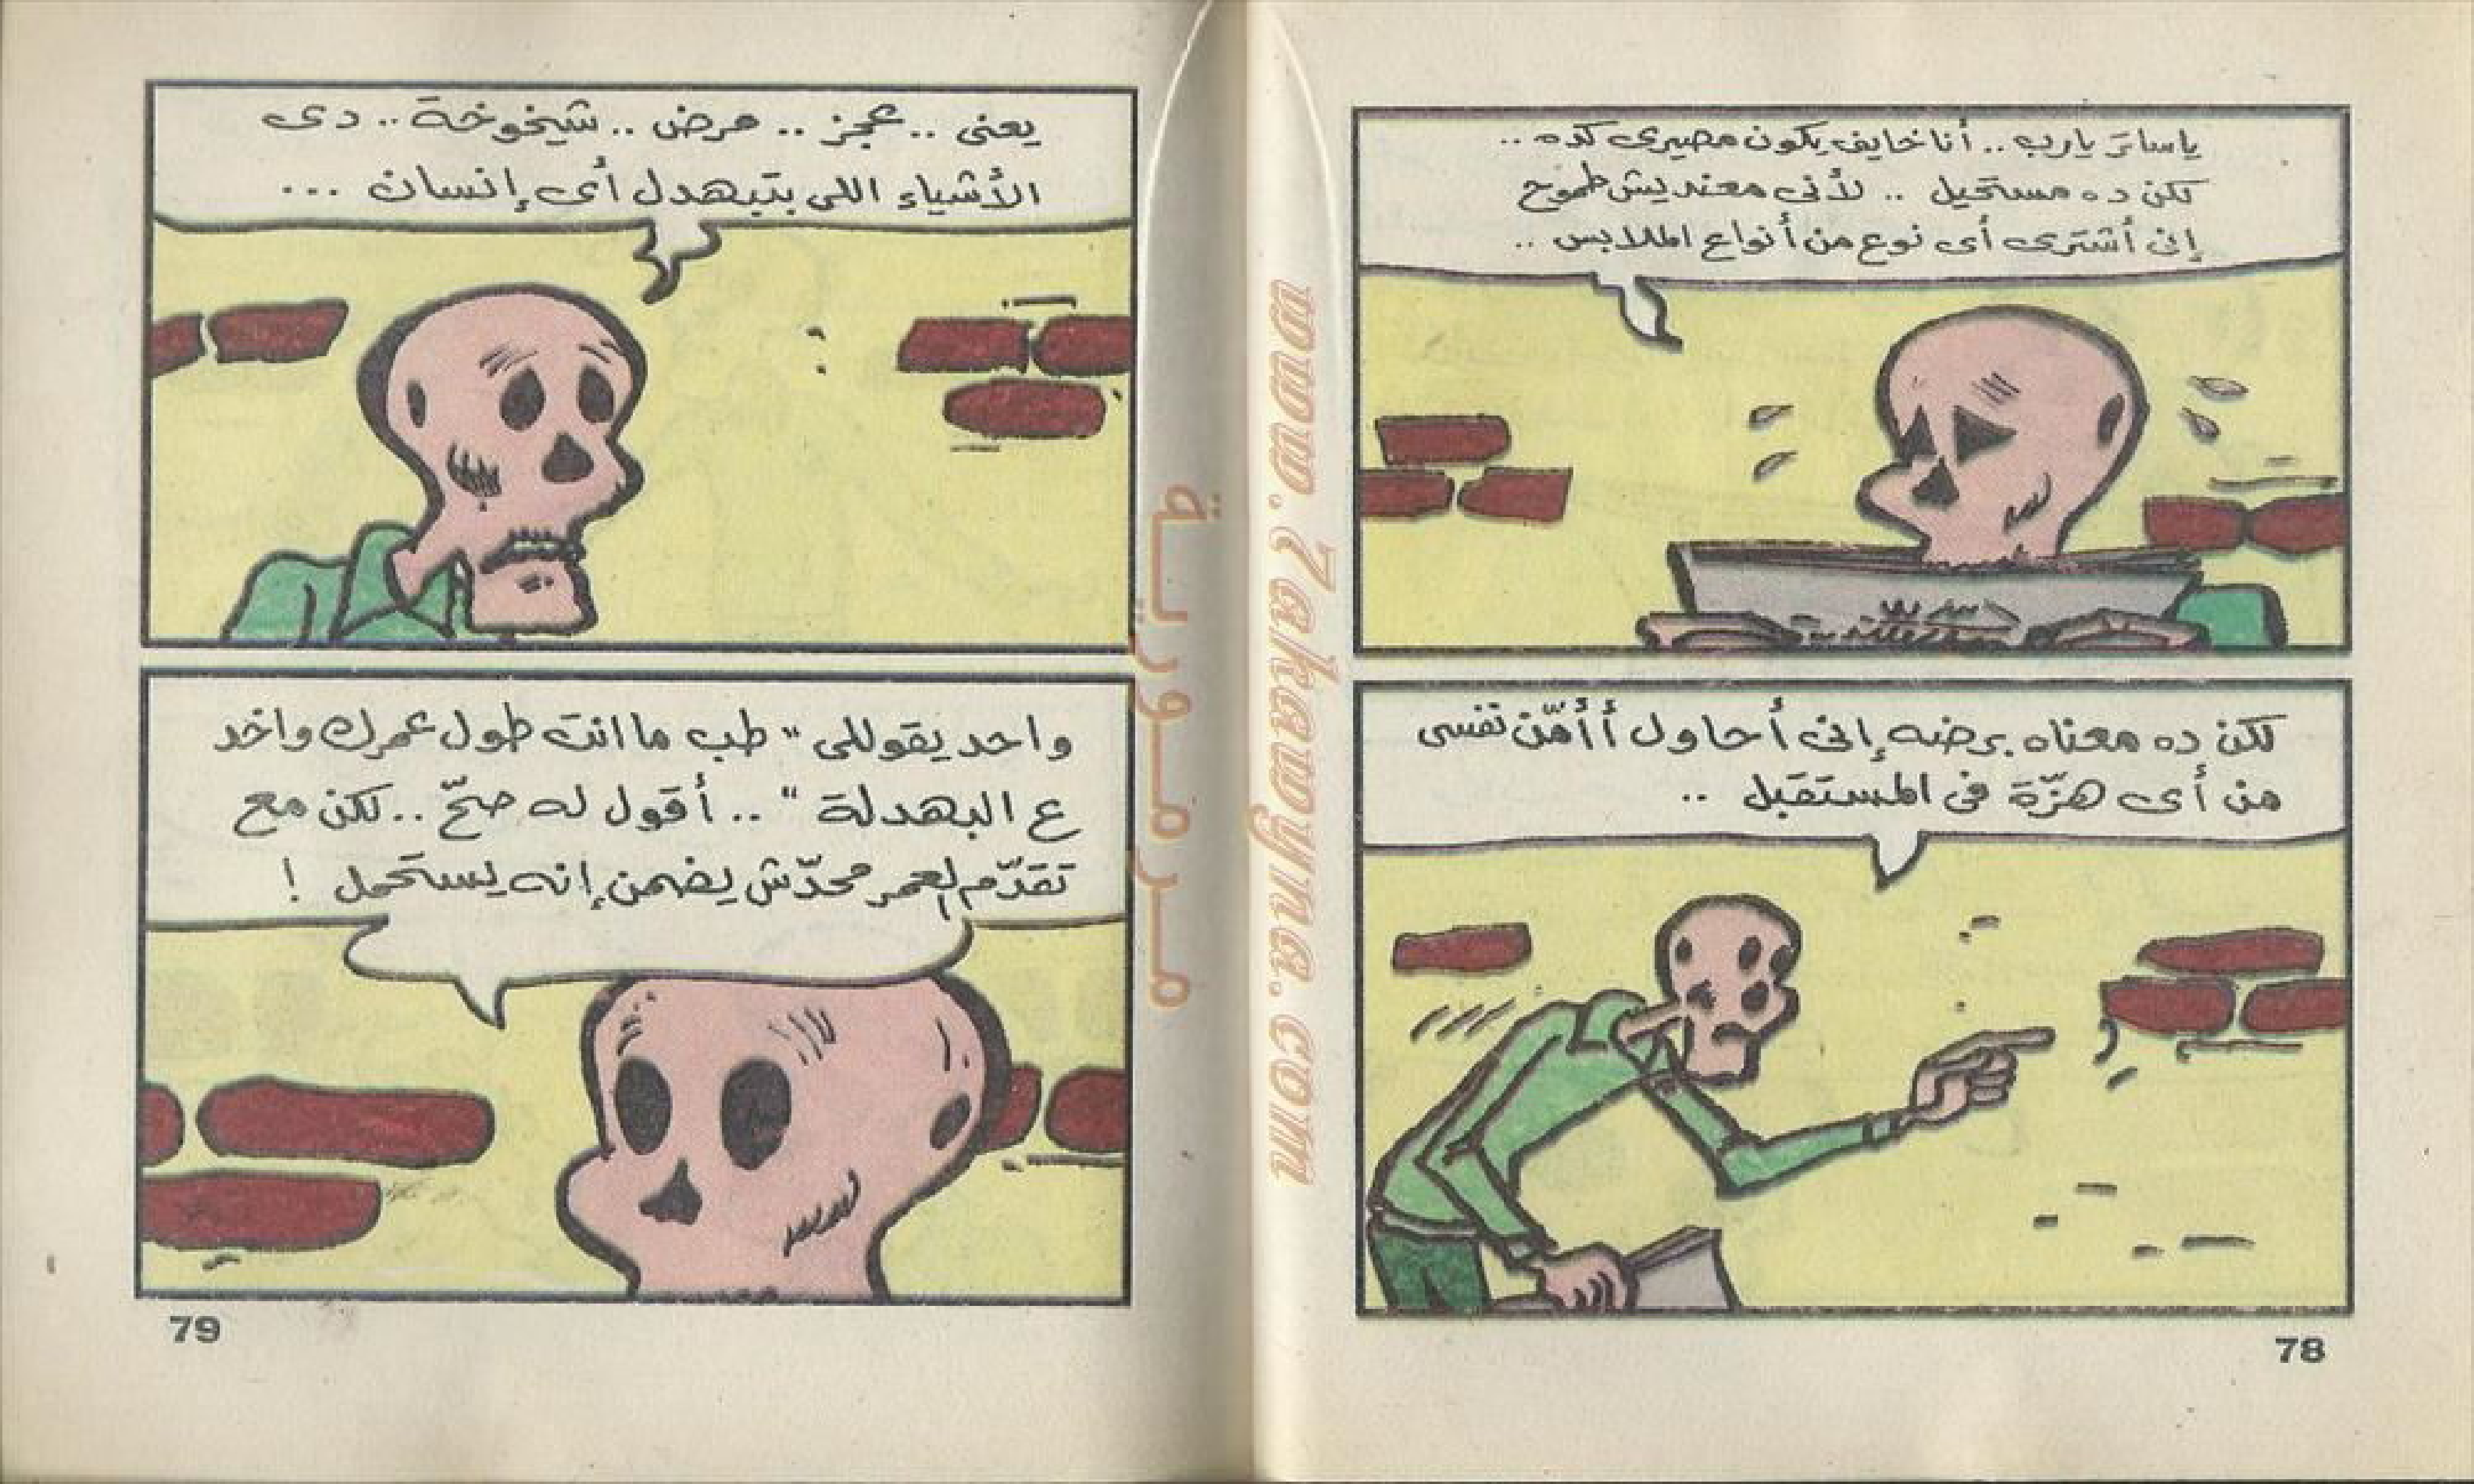 ياساتر يارب .. أنا خايف يكون مصيرى كده ..
لكن ده مستحيل .. لأنى معنديش طموح
إنى أشترى أى نوع من أنواع الملابس ..
لكن ده معناه برضه إنى أحاول أأمّن نفسى
من أى هزّة فى المستقبل ..
78
يعنى .. عجز .. مرض .. شيخوخة .. دى
الأشياء اللى بتبهدل أى إنسان ...
واحد يقوللى " طب ما انت طول عمرك واخد
ع البهدلة " .. أقول له صحّ .. لكن مع
تقدّم العمر محدّش يضمن إنه يستحمل !
79
www.7akawyna.com
مرمورية